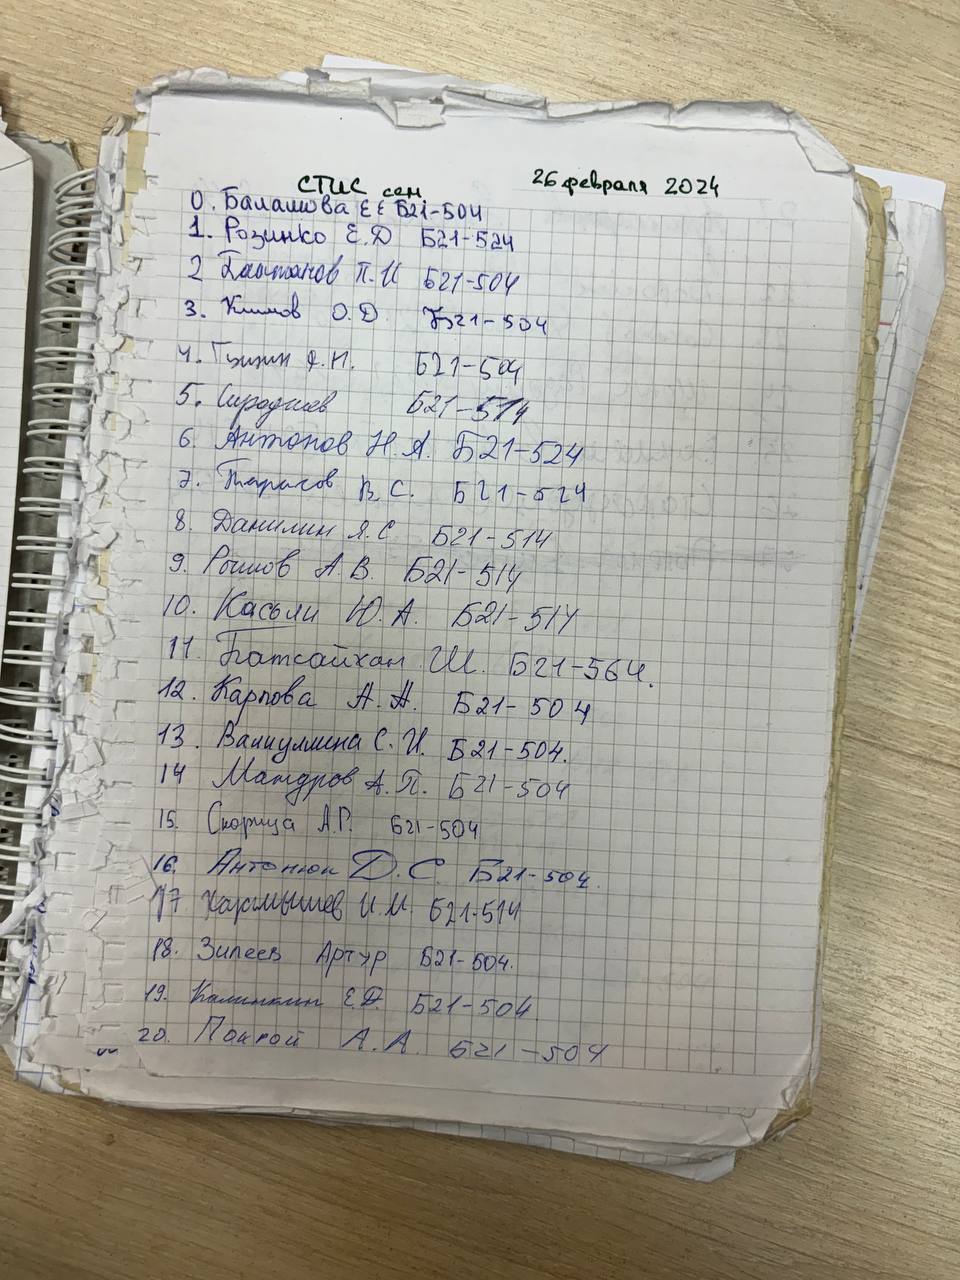 СТИС сем 26 февраля 2024
0. Балашова Е Е Б21-504
1. Розинко Е.Д Б21-524
2 П.И Б21-504
3. Климов О.Д Б21-504
4. Б21-504
5. Б21-514
6. Антонов Н.А. Б21-524
7. Тарасов В.С. Б21-524
8. Данилин Я.С Б21-514
9. А.В. Б21-514
10. Касьян Ю.А. Б21-514
11. Батсайхан Ш. Б21-564.
12. Карпова А.А. Б21-504
13. Валиуллина С.И. Б21-504.
14 Мандров А.П. Б21-504
15. Скорица А.Р. Б21-504
16. Антонюк Д.С. Б21-504.
17 И.М. Б21-514
18. Зилеев Артур Б21-504.
19. Калинкин Е.Д. Б21-504
20. А.А. Б21-504